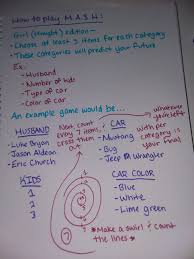 How to play M.A.S.H!
-Girl (straight) edition-
-Choose at least 3 items for each category
-These categories will predict your future
Ex.
-Husband
-Number of kids
-Type of car
-Color of car
An example game would be...
HUSBAND
-Luke Bryan
-Jason Aldean
-Eric Church
Now count
every 7 items,
cross them
out
CAR
-Mustang
-Bug
-Jeep Wrangler
whatever
your left
with per
category is
your final
KIDS
1
2
3
7
CAR COLOR
-Blue
-White
-Lime green
*Make a swirl & count
the lines*